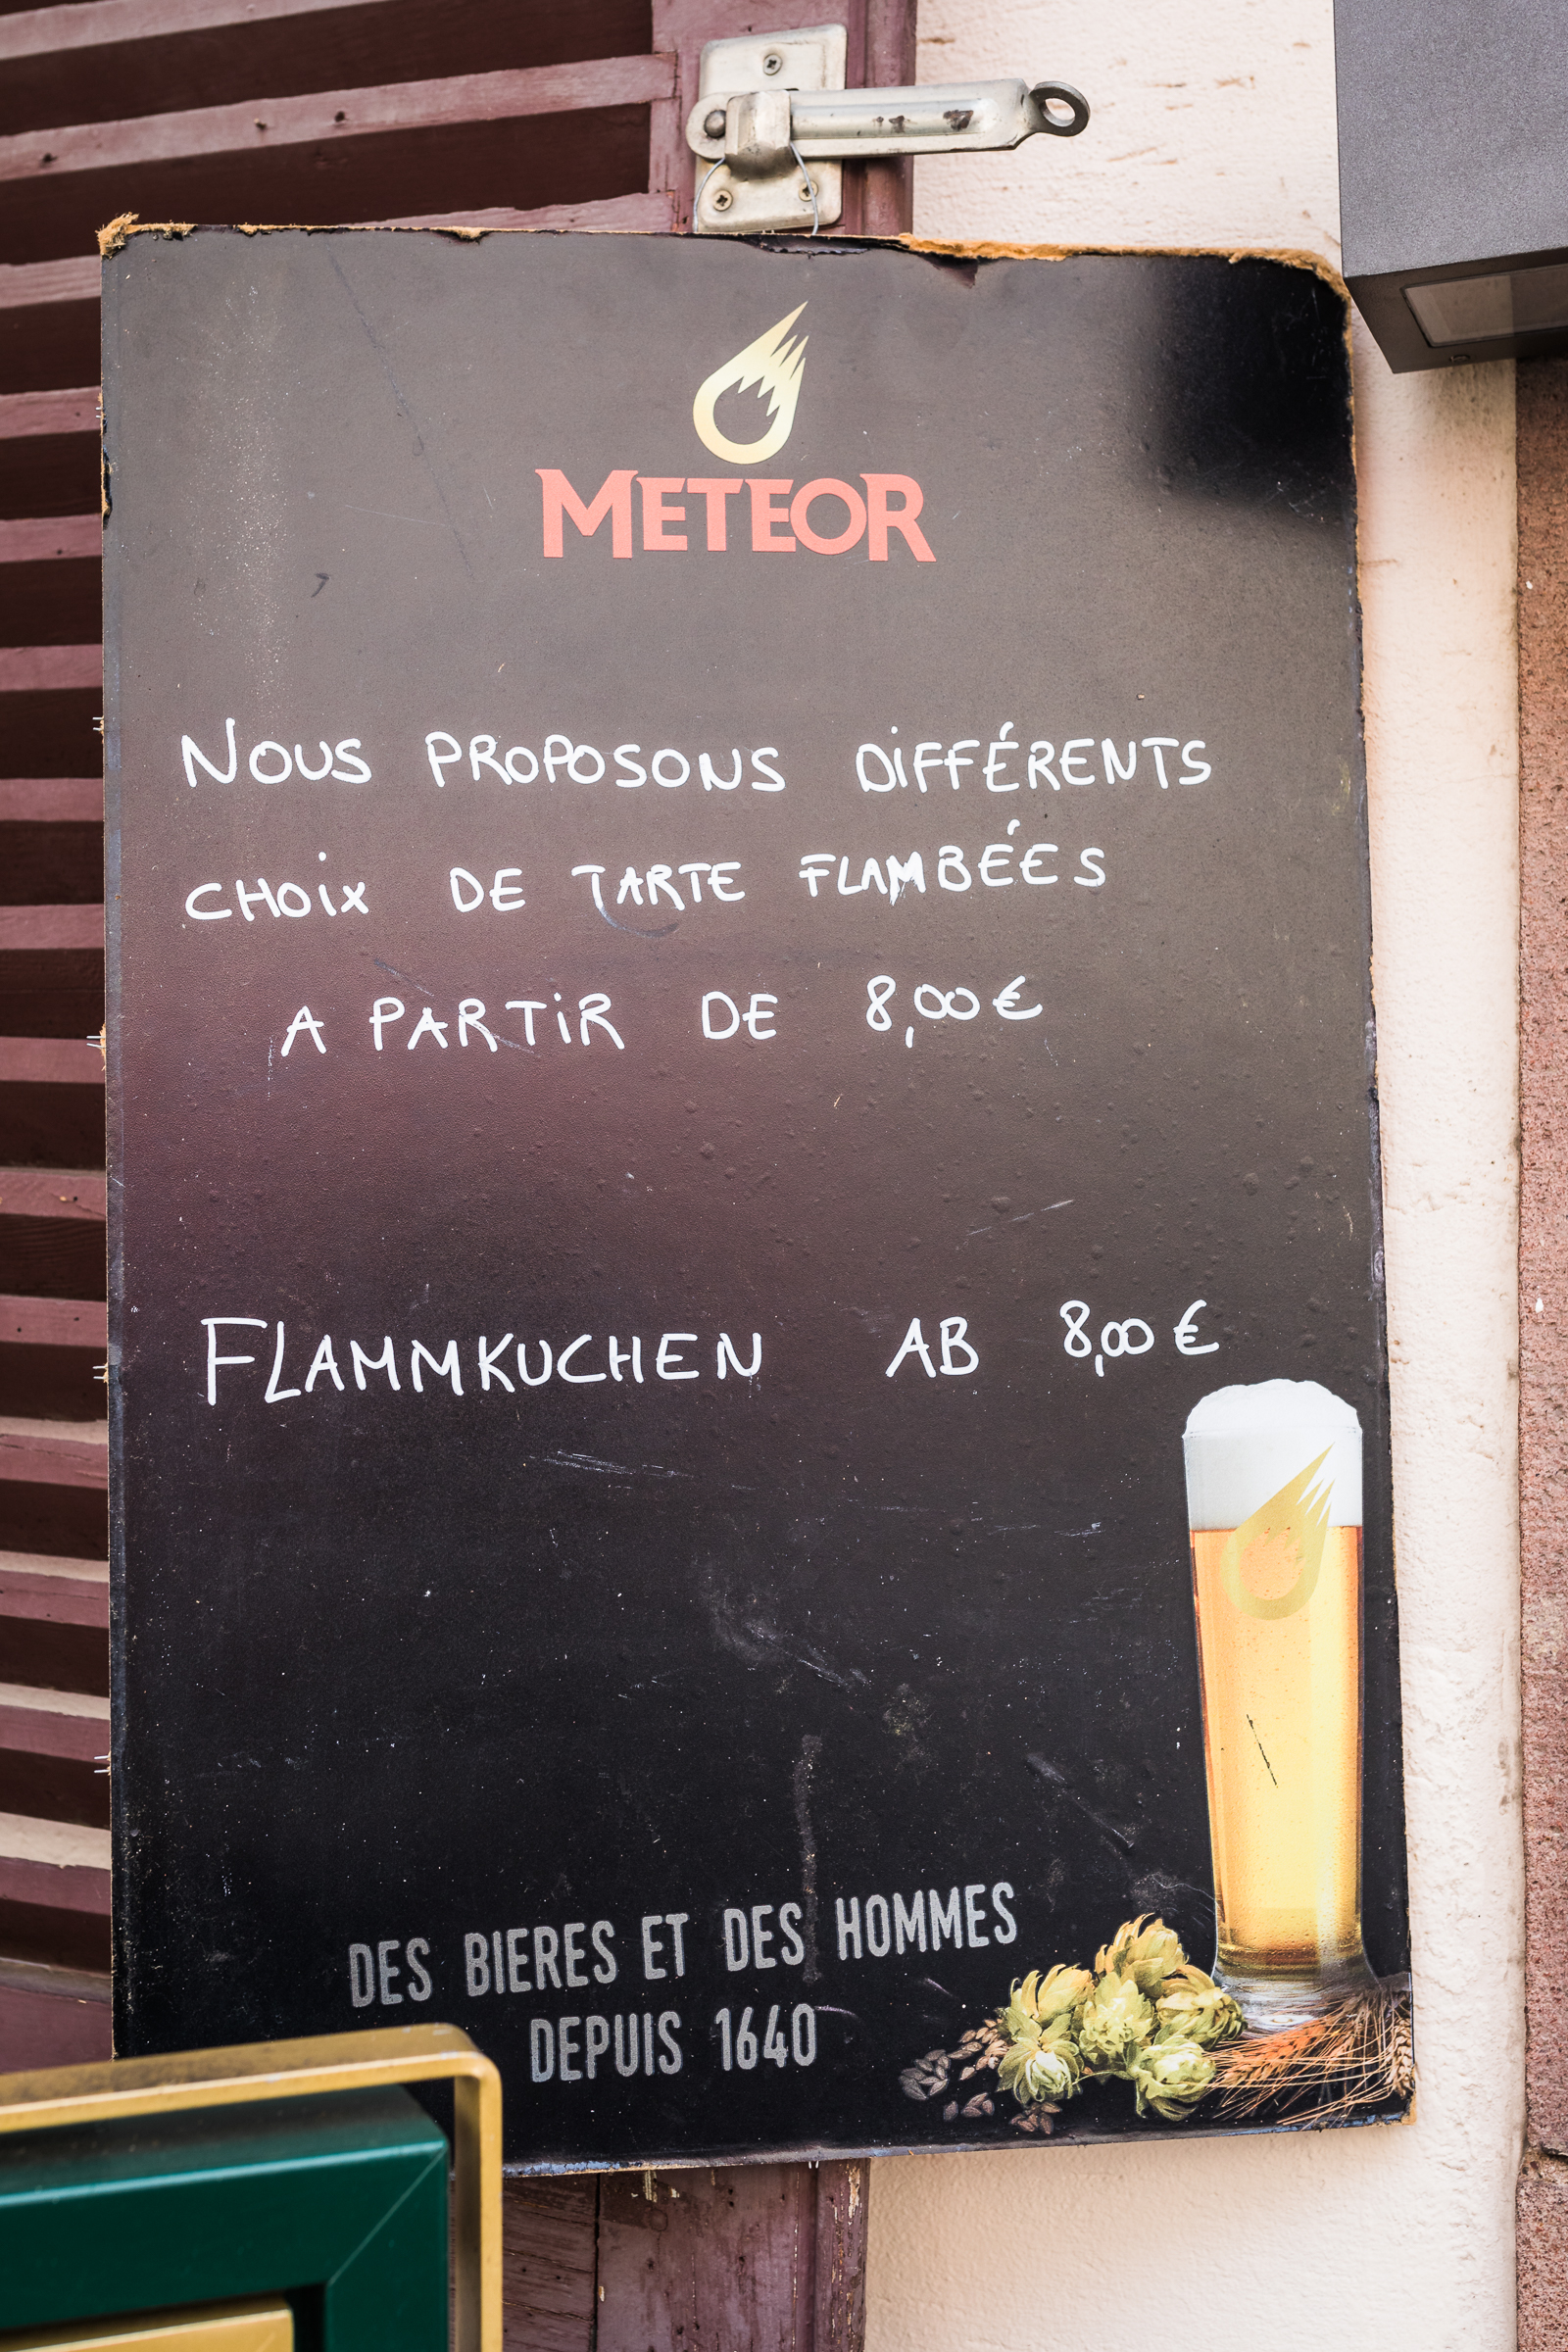 METEOR
NOUS PROPOSONS DIFFÉRENTS
CHOIX DE TARTE FLAMBÉES
A PARTIR DE 8,00€
FLAMMKUCHEN AB 8,00€
DES BIERES ET DES HOMMES
DEPUIS 1640